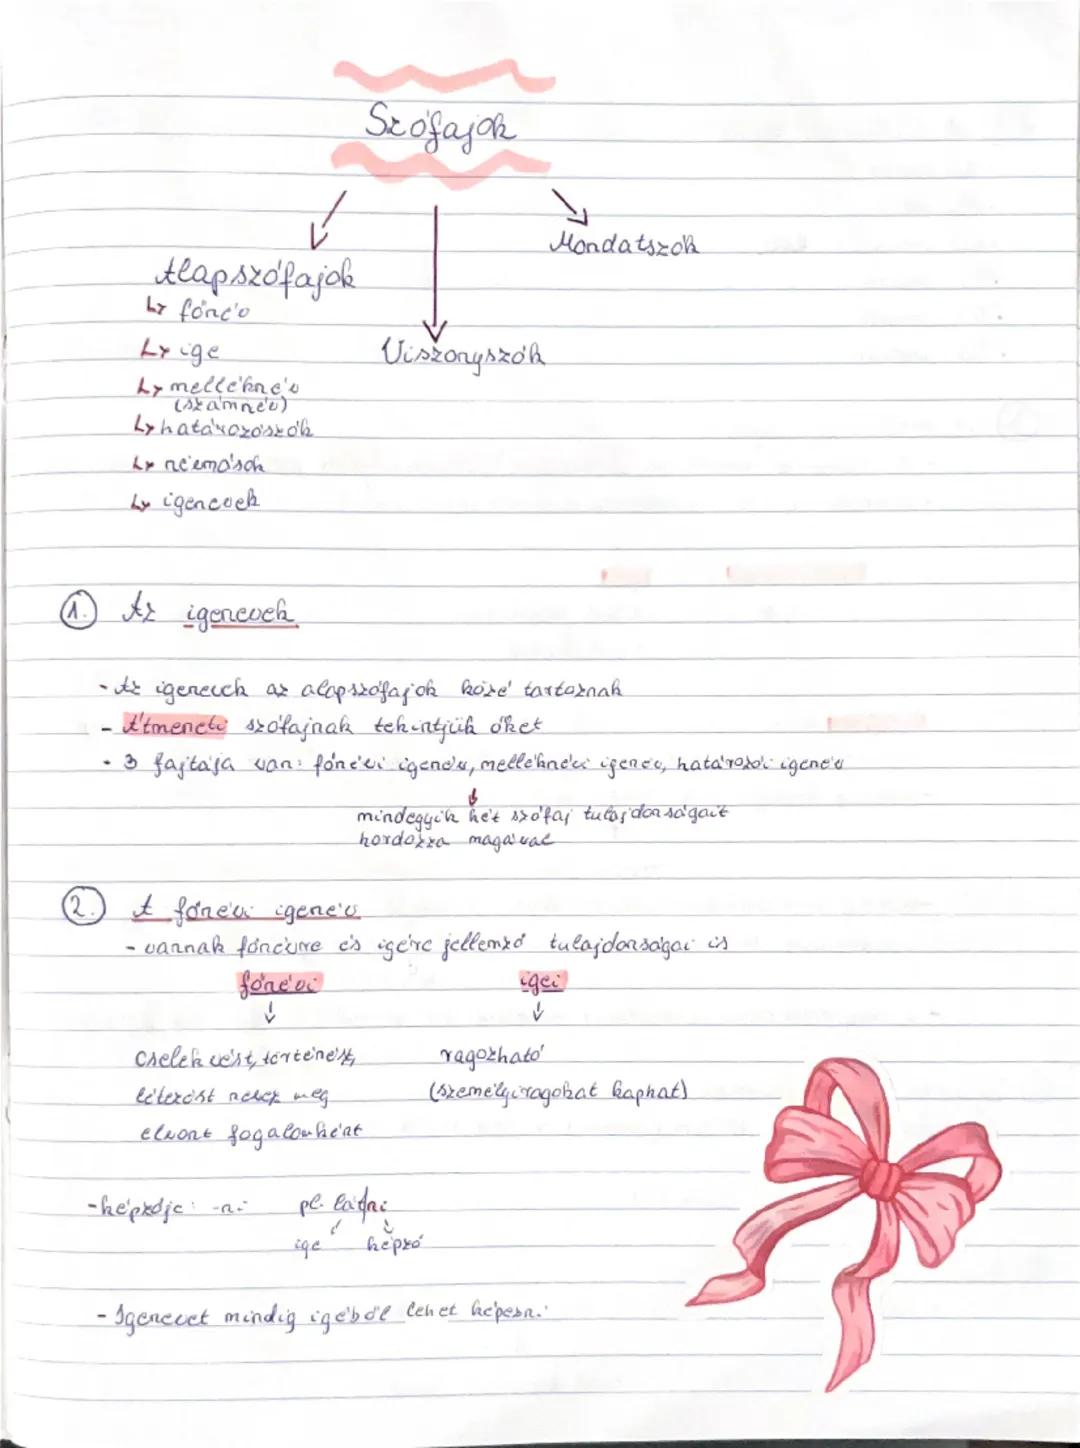 Szófajok
Alapszófajok
Mondatszók
Viszonyszók
↳ főnév
↳ ige
↳ melléknév
(számnév)
↳ határozószók
↳ névmások
↳ igenevek
1. Az igenevek
- Az igenevek az alapszófajok közé tartoznak
- Átmeneti szófajnak tekintjük őket
- 3 fajtája van: főnévi igenév, melléknévi igenév, határozói igenév
mindegyik két szófaj tulajdonságait
hordozza magával
2. A főnévi igenév
- vannak főnévre és igére jellemző tulajdonságai is
főnévi igei
cselekvést, történést, ragozható
létezést nevez meg (személyiragokat kaphat)
elvont fogalomként
- képzője: -ni pl. látni
ige képző
- Igenevet mindig igéből lehet képezni.